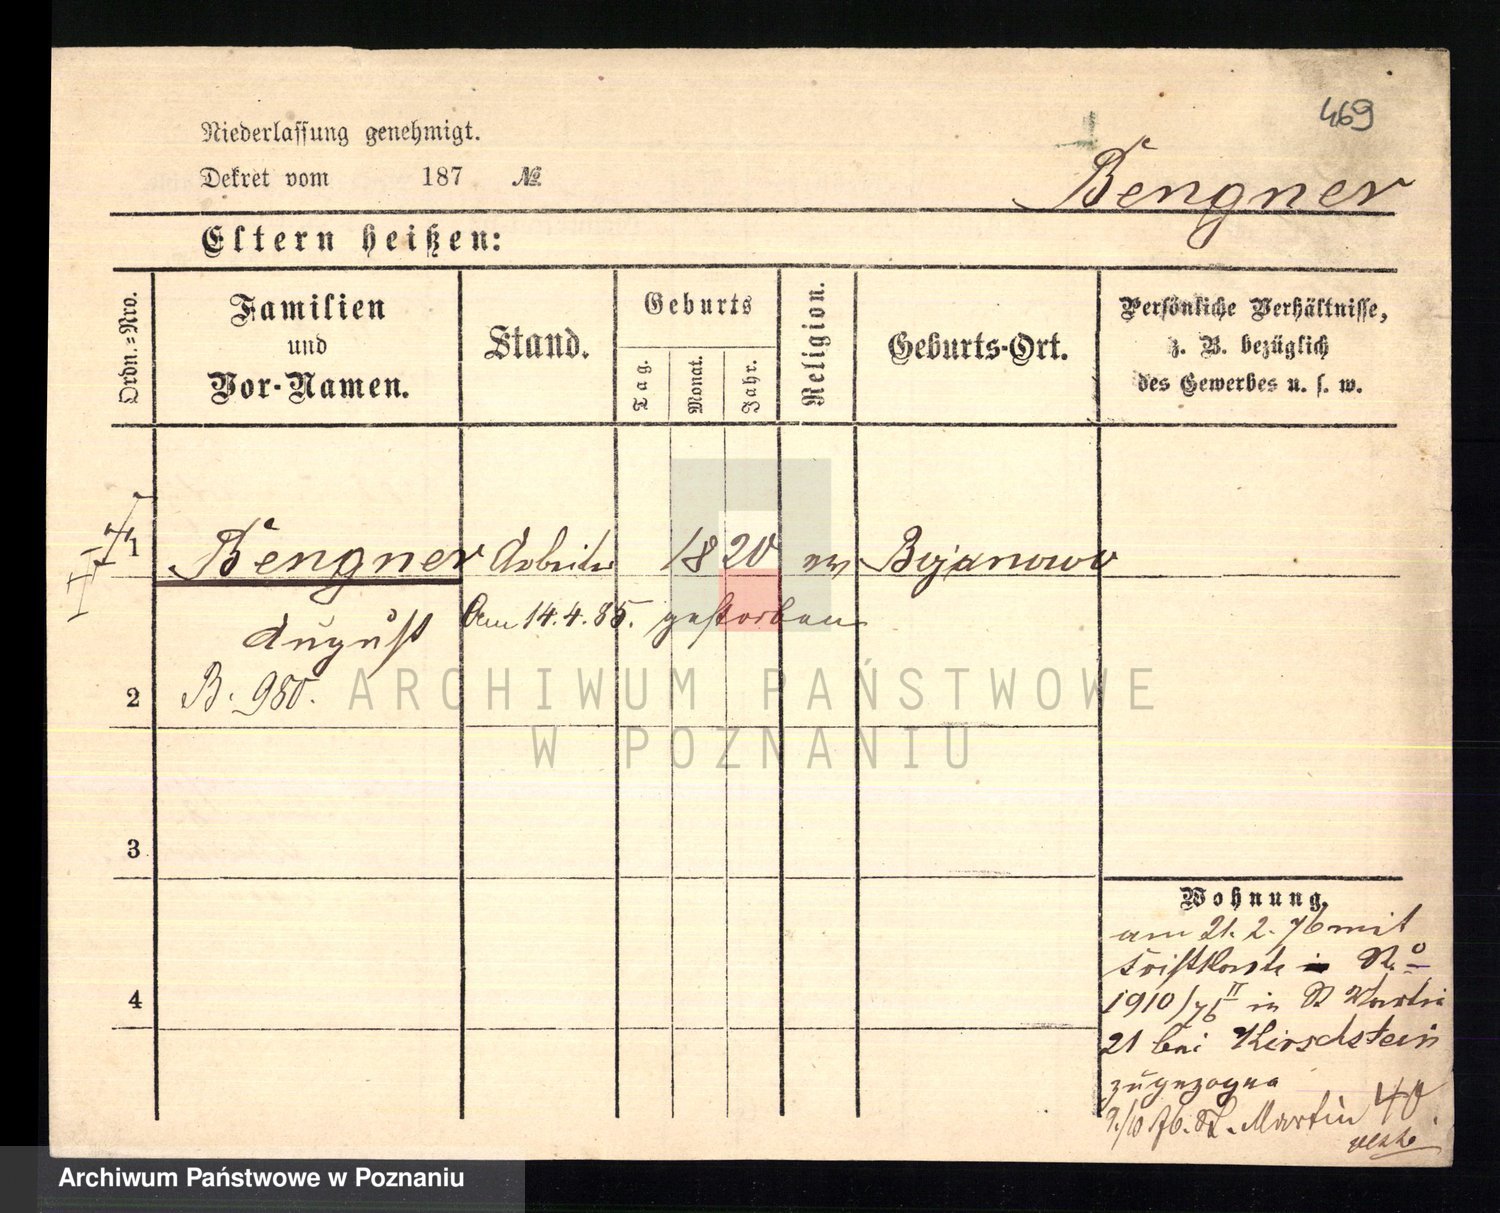 469
Niederlassung genehmigt.
Dekret vom 187 №
Bengner
Eltern heißen:
Ordn.=Nro.
Familien
und
Vor-Namen.
Stand.
Geburts
Tag.
Monat.
Jahr.
Religion.
Geburts-Ort.
Persönliche Verhältnisse,
z. B. bezüglich
des Gewerbes u. s. w.
1 Bengner Arbeiter 1820 ev Bojanowo
August Am 14.4.85. gestorben
2 B. 980.
ARCHIWUM PAŃSTWOWE
W POZNANIU
3
4
Wohnung.
am 21. 2. 76 mit
in No
1910/76 II in St Martin
21 bei Hirschstein
zugezogen
St. Martin 40
Archiwum Państwowe w Poznaniu